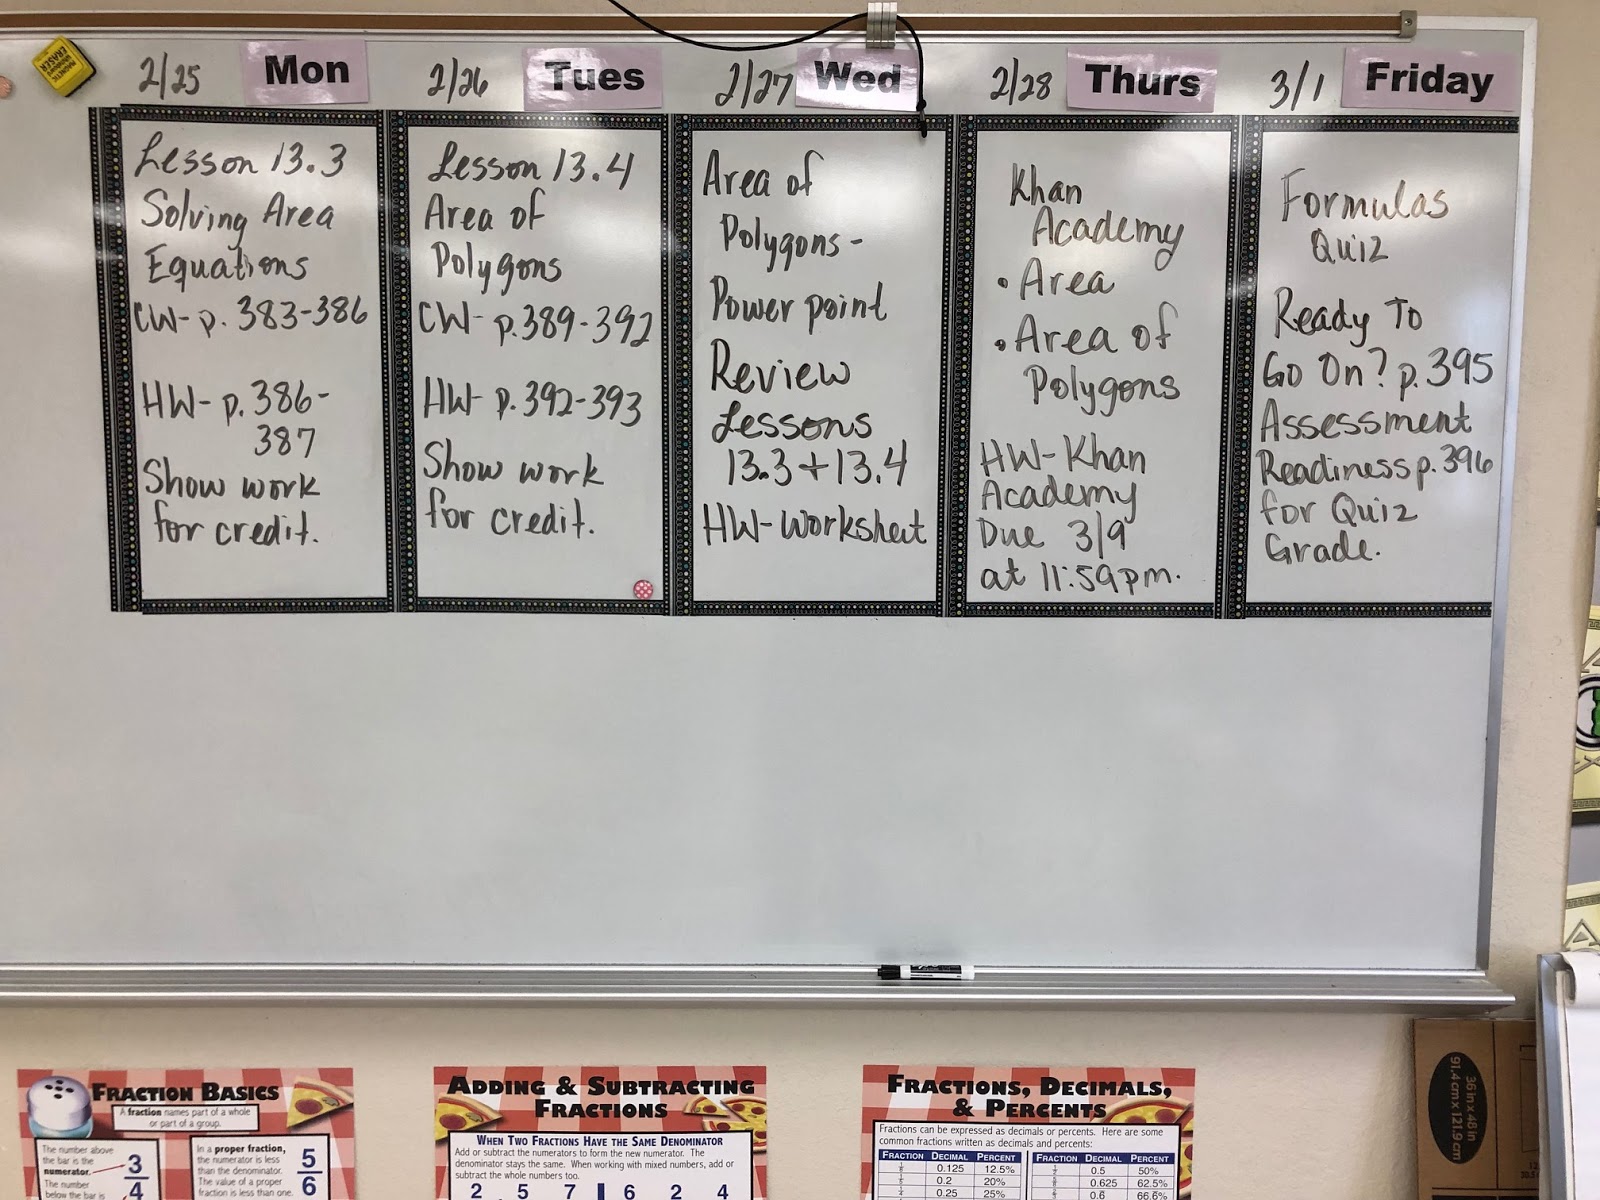 MAGNETIC
WHITEBOARD
ERASER
2/25 Mon
Lesson 13.3
Solving Area
Equations
CW- p. 383-386
HW- p. 386-
387
Show work
for credit.
2/26 Tues
Lesson 13.4
Area of
Polygons
CW- p. 389-392
HW- p. 392-393
Show work
for credit.
2/27 Wed
Area of
Polygons-
Power point
Review
Lessons
13.3 + 13.4
HW- Worksheet
2/28 Thurs
Khan
Academy
• Area
• Area of
Polygons
HW- Khan
Academy
Due 3/9
at 11:59pm.
3/1 Friday
Formulas
Quiz
Ready To
Go On? p. 395
Assessment
Readiness p. 396
for Quiz
Grade.
FRACTION BASICS
A fraction names part of a whole
or part of a group.
The number above
the bar is the
numerator.
The number
below the bar is
3
4
In a proper fraction,
the numerator is less
than the denominator.
The value of a proper
fraction is less than one.
5
6
ADDING & SUBTRACTING
FRACTIONS
WHEN TWO FRACTIONS HAVE THE SAME DENOMINATOR
Add or subtract the numerators to form the new numerator. The
denominator stays the same. When working with mixed numbers, add or
subtract the whole numbers too.
2 5 7 6 2 4
FRACTIONS, DECIMALS,
& PERCENTS
Fractions can be expressed as decimals or percents. Here are some
common fractions written as decimals and percents:
FRACTION DECIMAL PERCENT
1/8 0.125 12.5%
1/5 0.2 20%
1/4 0.25 25%
FRACTION DECIMAL PERCENT
1/2 0.5 50%
0.625 62.5%
0.6 66.6%
36 in x 48 in
91.4 cm x 121.9 cm